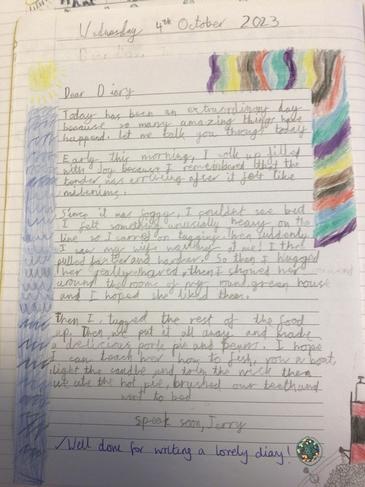 Wednesday 4th October 2023
Dear Diary
Today has been an extraordinary day
because so many amazing things have
happend. let me talk you through today
Early this morning, I wolk up filled
with Joy because I remembered that the
tender was arriving after it felt like
Since it was foggy, I couldn't see but
I felt something unusially heavy on the
line so I carryed on tugging then suddenly
I saw my wife waving at me! I then
pulled faster and harder. So then I hugged
her really hared, then I showed her
around the rooms of my round green house
and I hoped she liked them.
Then I tugged the rest of the food
up. Then we put it all away and made
a delicious porke pie and beans. I hope
I can teach her how to fish, row a boat,
light the candle and trim the wick then
we ate the hot pie, brushed our teeth and
went to bed
Speak soon, Jerry
Well done for writing a lovely diary!